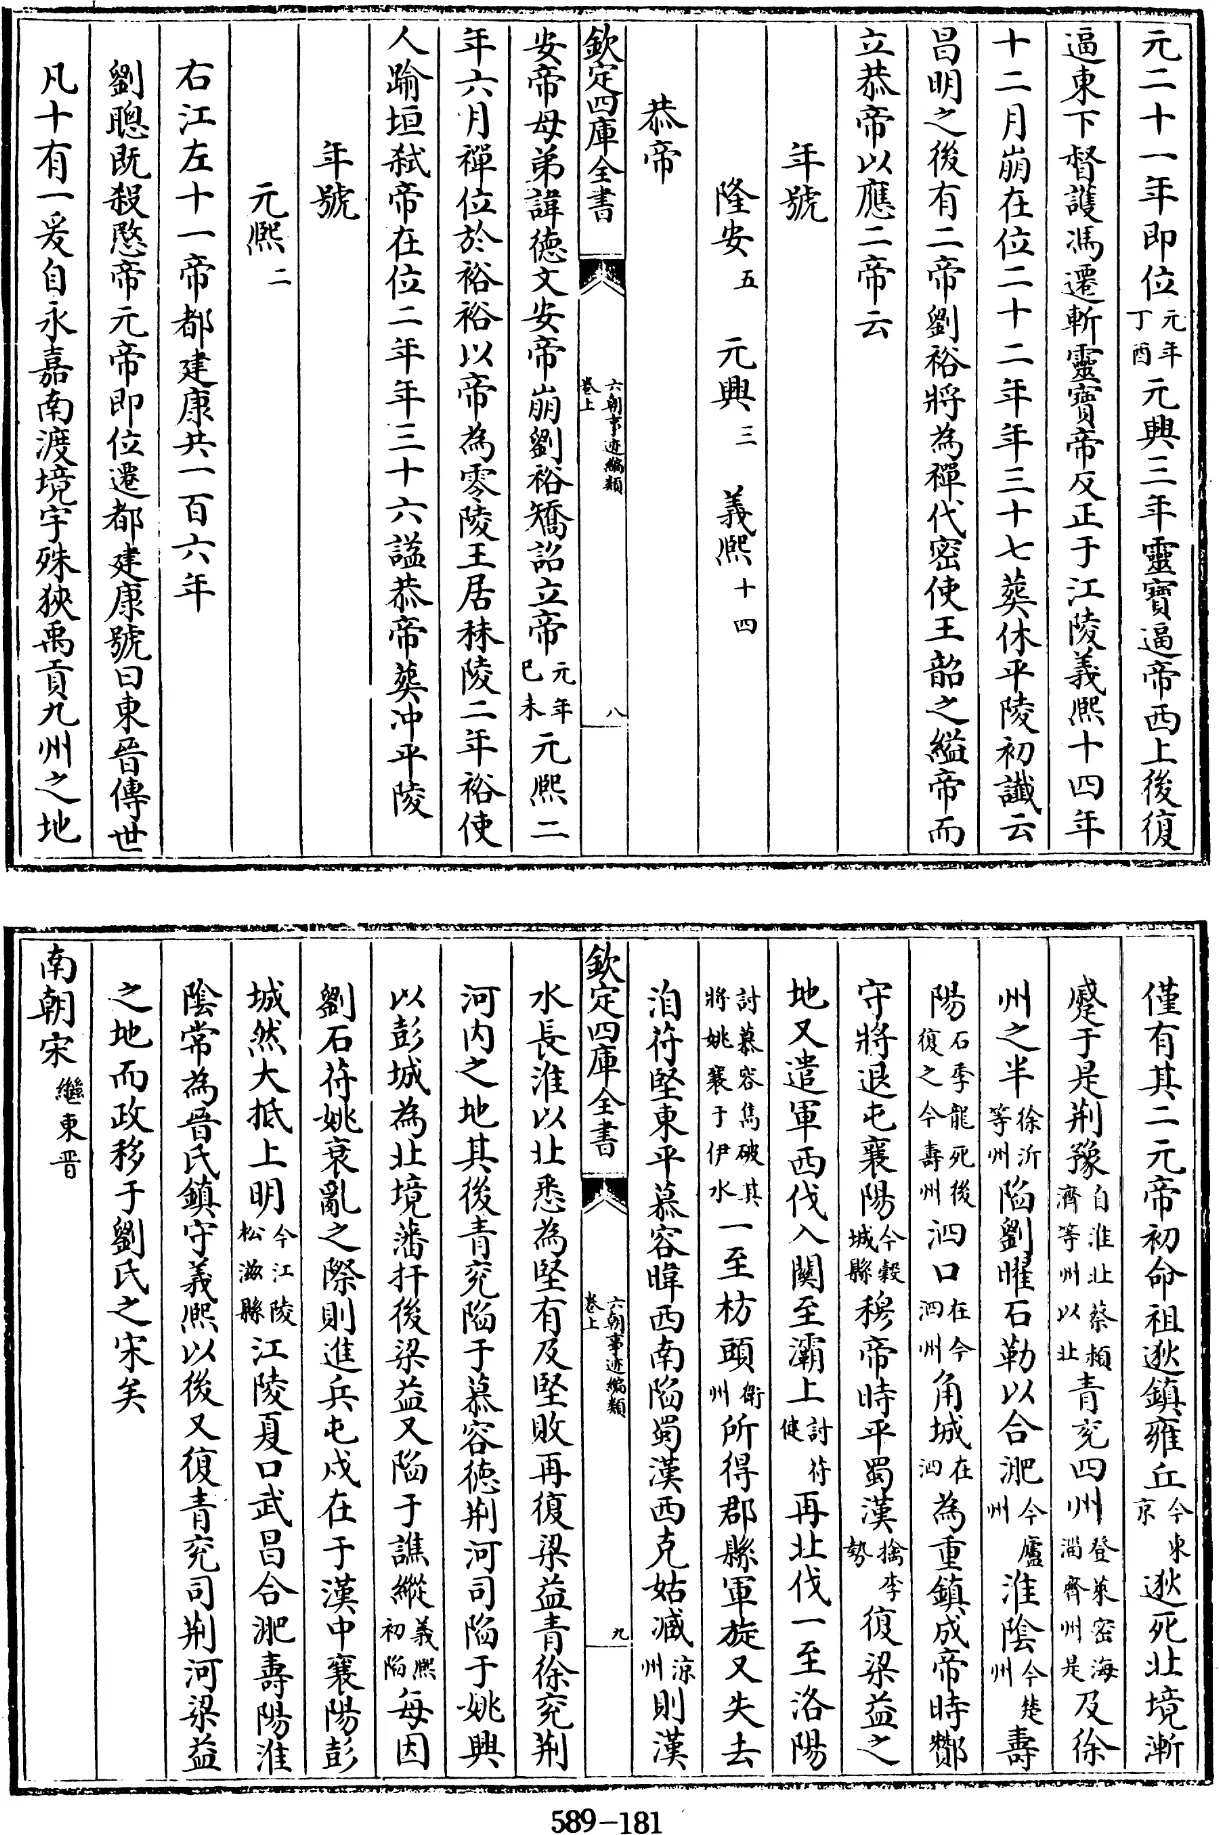 元二十一年即位元年丁酉元興三年靈寶逼帝西上後復
逼東下督護馮遷斬靈寶帝反正于江陵義熙十四年
十二月崩在位二十二年年三十七葬休平陵初讖云
昌明之後有二帝劉裕將為禪代密使王韶之縊帝而
立恭帝以應二帝云
年號
隆安五　元興三　義熙十四
恭帝
欽定四庫全書　六朝事迹編類卷上　八
安帝母弟諱德文安帝崩劉裕矯詔立帝元年已未元熙二
年六月禪位於裕裕以帝為零陵王居秣陵二年裕使
人踰垣弒帝在位二年年三十六謚恭帝葬沖平陵
年號
元熙二
右江左十一帝都建康共一百六年
劉聰既殺愍帝元帝即位遷都建康號曰東晉傳世
凡十有一爰自永嘉南渡境宇殊狹禹貢九州之地
僅有其二元帝初命祖逖鎮雍丘今東京逖死北境漸
蹙于是荆豫自淮北蔡潁濟等州以北青兖四州登萊密海淄齊州是及徐
州之半徐沂等州陷劉曜石勒以合淝今廬州淮陰今楚州壽
陽石季龍死後復之今壽州泗口在今泗州角城在泗為重鎮成帝時鄼
守將退屯襄陽今穀城縣穆帝時平蜀漢擒李勢復梁益之
地又遣軍西伐入關至灞上討苻健再北伐一至洛陽
討慕容雋破其將姚襄于伊水一至枋頭衛州所得郡縣軍旋又失去
洎苻堅東平慕容暐西南陷蜀漢西克姑臧涼州則漢
欽定四庫全書　六朝事迹編類卷上　九
水長淮以北悉為堅有及堅敗再復梁益青徐兖荆
河内之地其後青兖陷于慕容德荆河司陷于姚興
以彭城為北境藩扞後梁益又陷于譙縱義熙初陷每因
劉石苻姚衰亂之際則進兵屯戍在于漢中襄陽彭
城然大抵上明今江陵松滋縣江陵夏口武昌合淝壽陽淮
陰常為晉氏鎮守義熙以後又復青兖司荆河梁益
之地而政移于劉氏之宋矣
南朝宋繼東晉
589-181